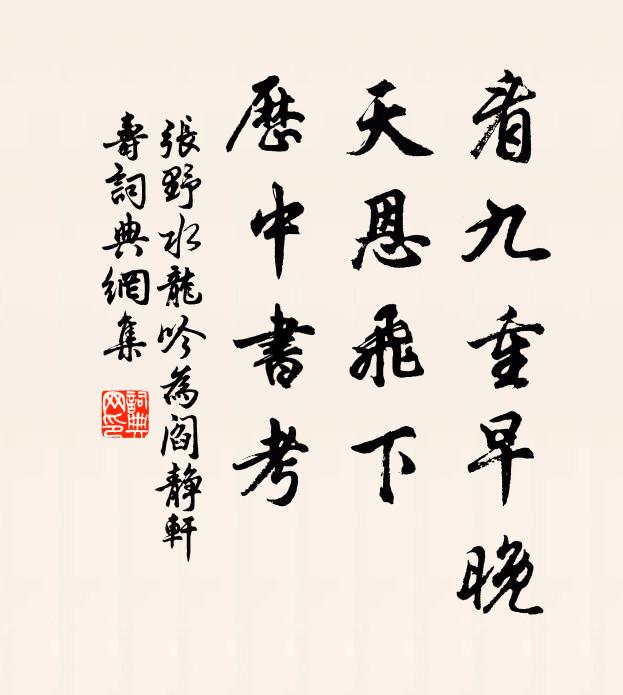 看九重早晚
天恩飛下
歷中書考
張野水龍吟為閻靜軒
壽詞典網集
詞典網印